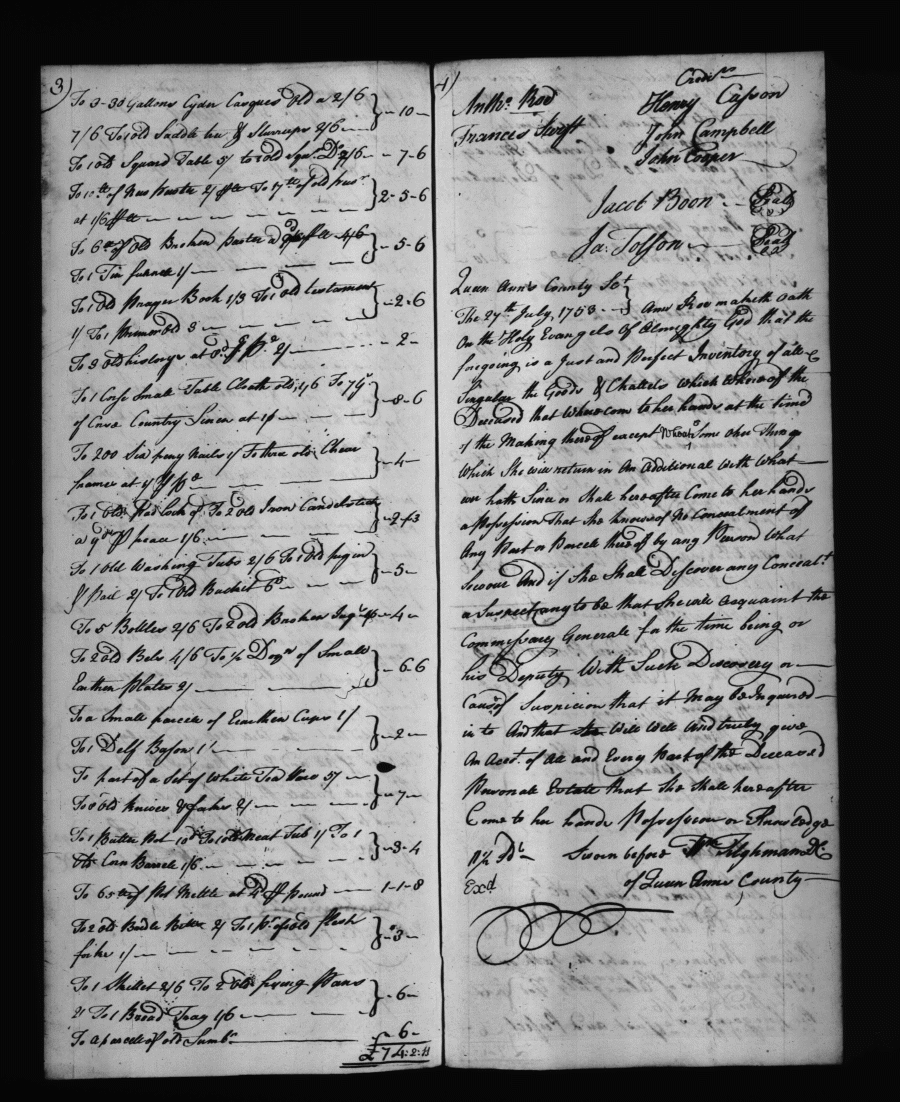 3)
To 3-30 Gallons Cyder Casques Old a 2/6 } - 10 -
7/6 To 1 old Saddle & Sturrups 2/6
To 1 old Square Table 5/ to 1 old Squr. Do. 2/6 - - 7 - 6
To 10 lb of New Puter 2/ To 17 lb of old } 2 - 5 - 6
at 1/6
To 6 lb of Old Broken Puter a 9d } - 5 - 6
To 1 Tin funnel 1/
To 1 Old Prayer Book 1/3 To 1 old testament } - 2 - 6
1/ To 1 old 3
To 3 old historys at 2/ - 2 -
To 1 Corse Small Table Cloath old, 1/6 To 7 Yd } - 8 - 6
of Corse Country Linen at 1/
To 200 Six peny nails 1/ To three old Chear } - 4 -
frames at 1/
To 1 Old Pad lock To 2 old Iron Candlestick
a 9d peace 1/6
To 1 Old Washing Tubs 2/6 To 1 Old } - 5 -
& Pail 2/ To 1 Old Bucket 6d
To 5 Bottles 2/6 To 2 old Broken - 4 -
To 2 old Bels 4/6 To 1/2 Dozn of Small } - 6 6
Earthen Plates 2/
To a Small parcele of Earthen Cups 1/ } - 2 -
To 1 Delf Bason 1/
To part of a Set of White Tea Ware 5/ } - 7 -
To 8 old Knives & forks 2/
To 1 Butter Pot 10d To 1 old Meat Tub 1/ To 1 } - 3 - 4
old Corn Barrele 1/6
To 65 lb of Pot Mettle at 4d pound 1 - 1 - 8
To 2 old 2/ To 1 Pr. of old Flesh } - 3 -
forke 1/
To 1 Skillet 2/6 To 2 old frying Pans } - 6 -
2/ To 1 Bread Tray 1/6
To a parcele of old Lumbr 6 -
£ 74:2:
4)
Credrs
Antho. Roe Henry Casson
Frances Swift John Campbell
John Cooper
Jacob Boon Seal
Ja: Tolson Seal
Queen Ann's County Sct.
The 27th July, 1753 } Ann Roe maketh Oath
On the Holy Evangels Of Almyghty God that the
foregoing is a Just and Perfect Inventory of all &
Singular the Goods & Chattels which were of the
Deceased that have come to her hands at the time
of the Making thereof except Wheat Some other Things
Which She will return in An Additional With What
hath Since or Shall hereafter Come to her hands
or Possession That She knows of No Concealment of
Any Part or Parcele thereof by any Person What
Soever And if She Shall Discover any Concealt.
or Suspect any to be that She will acquaint the
Commissary Generale for the time being or
his Deputy With Such Discovery or
Cause of Suspicion that it May be Inquired
in to And that She Will Well And truly give
An Acct. of All and Every Part of the Deceased
Personale Estate that She Shall hereafter
Come to her hands Possession or Knowledge
Sworn before Wm. Tilghman DC
Exd. of Queen Anns County